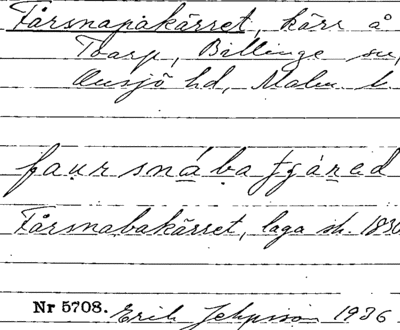 Fårsnapakärret, kärr å
Toarp, Billinge sn,
Onsjö hd, Malm. l.
faụrsnábatgáṛed
Fårsnabakärret, laga sk. 1830
Nr 5708. Erik Jeppsson 1936